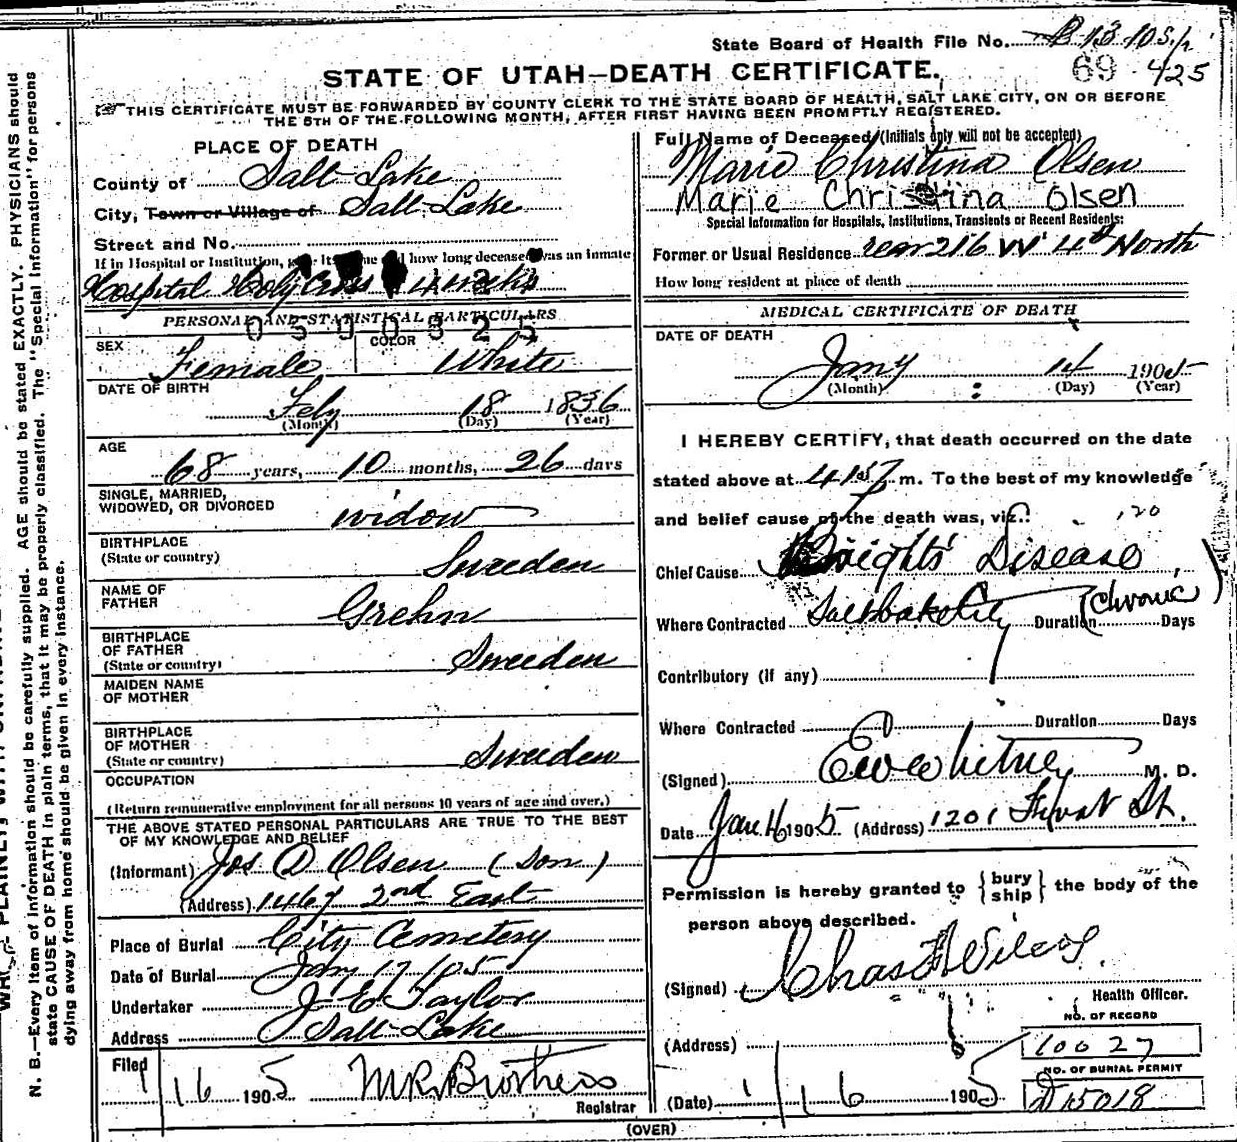 State Board of Health File No.
69 425
STATE OF UTAH—DEATH CERTIFICATE.
THIS CERTIFICATE MUST BE FORWARDED BY COUNTY CLERK TO THE STATE BOARD OF HEALTH, SALT LAKE CITY, ON OR BEFORE
THE 5TH OF THE FOLLOWING MONTH, AFTER FIRST HAVING BEEN PROMPTLY REGISTERED.
PLACE OF DEATH
County of Salt Lake
City, Town or Village of Salt Lake
Street and No.
If in Hospital or Institution, how long deceased was an inmate
Hospital Holy Cross 4 weeks
PERSONAL AND STATISTICAL PARTICULARS
0590325
SEX Female COLOR White
DATE OF BIRTH
Feby 18 1836
(Month) (Day) (Year)
AGE
68 years, 10 months, 26 days
SINGLE, MARRIED,
WIDOWED, OR DIVORCED widow
BIRTHPLACE
(State or country) Sweeden
NAME OF
FATHER Grehn
BIRTHPLACE
OF FATHER
(State or country) Sweeden
MAIDEN NAME
OF MOTHER
BIRTHPLACE
OF MOTHER
(State or country) Sweeden
OCCUPATION
(Return remunerative employment for all persons 10 years of age and over.)
THE ABOVE STATED PERSONAL PARTICULARS ARE TRUE TO THE BEST
OF MY KNOWLEDGE AND BELIEF
(Informant) Jos D. Olsen (Son)
(Address) 1467 2nd East
Place of Burial City Cemetery
Date of Burial Jany 17/05
Undertaker J E Taylor
Address Salt Lake
Filed
1/16 1905
Registrar
Full Name of Deceased (Initials only will not be accepted)
Marie Christina Olsen
Marie Christina Olsen
Special Information for Hospitals, Institutions, Transients or Recent Residents:
Former or Usual Residence rear 216 W 4th North
How long resident at place of death
MEDICAL CERTIFICATE OF DEATH
DATE OF DEATH
Jany 14 1905
(Month) (Day) (Year)
I HEREBY CERTIFY, that death occurred on the date
stated above at m. To the best of my knowledge
and belief cause of the death was, viz.: 120
Chief Cause Brights' Disease
Where Contracted Salt Lake City Duration (Chronic) Days
Contributory (if any)
Where Contracted Duration Days
(Signed) Ew Whitney M. D.
Date Jan 16 1905 (Address) 1201 St.
Permission is hereby granted to {bury ship} the body of the
person above described.
(Signed) Chas
Health Officer.
(Address)
NO. OF RECORD
10027
NO. OF BURIAL PERMIT
D 15018
(Date) 1/16 1905
(OVER)
N. B.—Every item of information should be carefully supplied. AGE should be stated EXACTLY. PHYSICIANS should
state CAUSE OF DEATH in plain terms, that it may be properly classified. The "Special Information" for persons
dying away from home should be given in every instance.